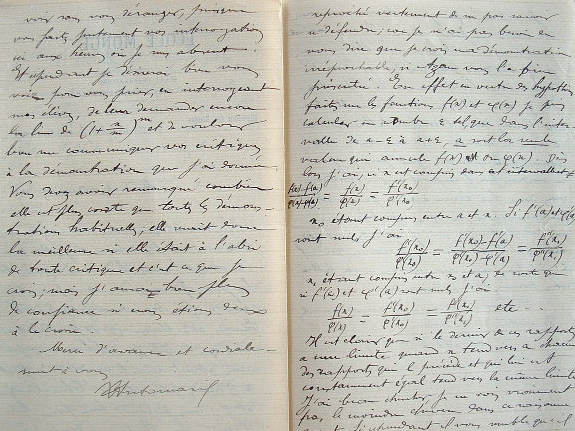 voir sans vous déranger, puisque
vos heures
ou aux heures où je suis absent.
Cependant je désirerais bien vous
voir pour vous prier, en interrogeant
nos élèves, de leur demander encore
la lim de (1+a/m)^m et de vouloir
bien me communiquer vos critiques
à la démonstration que j'ai donnée.
Vous devez avoir remarqué combien
elle est plus courte que toutes les démons-
trations habituelles; elle serait donc
la meilleure si elle était à l'abri
de toute critique et c'est ce que je
crois; mais j'aurai bien plus
de confiance si nous étions deux
à le croire.
Merci d'avance et cordiale-
ment à vous
reproché vertement de ne pas savoir
me défendre; car je n'ai pas besoin de
vous dire que je crois ma démonstration
irréprochable, si vous l'a bien
présentée. En effet en vertu des hypothèses
faites sur les fonctions f(x) et φ(x) je puis
calculer un nombre ε tel que dans l'inter-
valle de a-ε à a+ε, a soit la seule
valeur qui annule f(x) ou φ(x). Dès
lors j'ai, si x est compris dans cet intervalle
f(x)-f(a)/φ(x)-φ(a) = f(x)/φ(x) = f'(x₀)/φ'(x₀)
x₀ étant compris entre a et x. Si f'(a) et φ'(a)
sont nuls j'ai
f'(x₀)/φ'(x₀) = f'(x₀)-f'(a)/φ'(x₀)-φ'(a) = f''(x₁)/φ''(x₁)
x₁ étant compris entre x₀ et a; de sorte que
si f'(a) et φ'(a) sont nuls j'ai
f(x)/φ(x) = f'(x₀)/φ'(x₀) = f''(x₁)/φ''(x₁) etc...
Il est clair que si le dernier de ces rapports
a une limite quand x tend vers a chacun
des rapports qui le précède et qui lui est
constamment égal tend vers la même limite
J'ai beau chercher, je ne vois vraiment
pas le moindre dans ce raisonne-
ment. Si cependant il vous semble qu'il